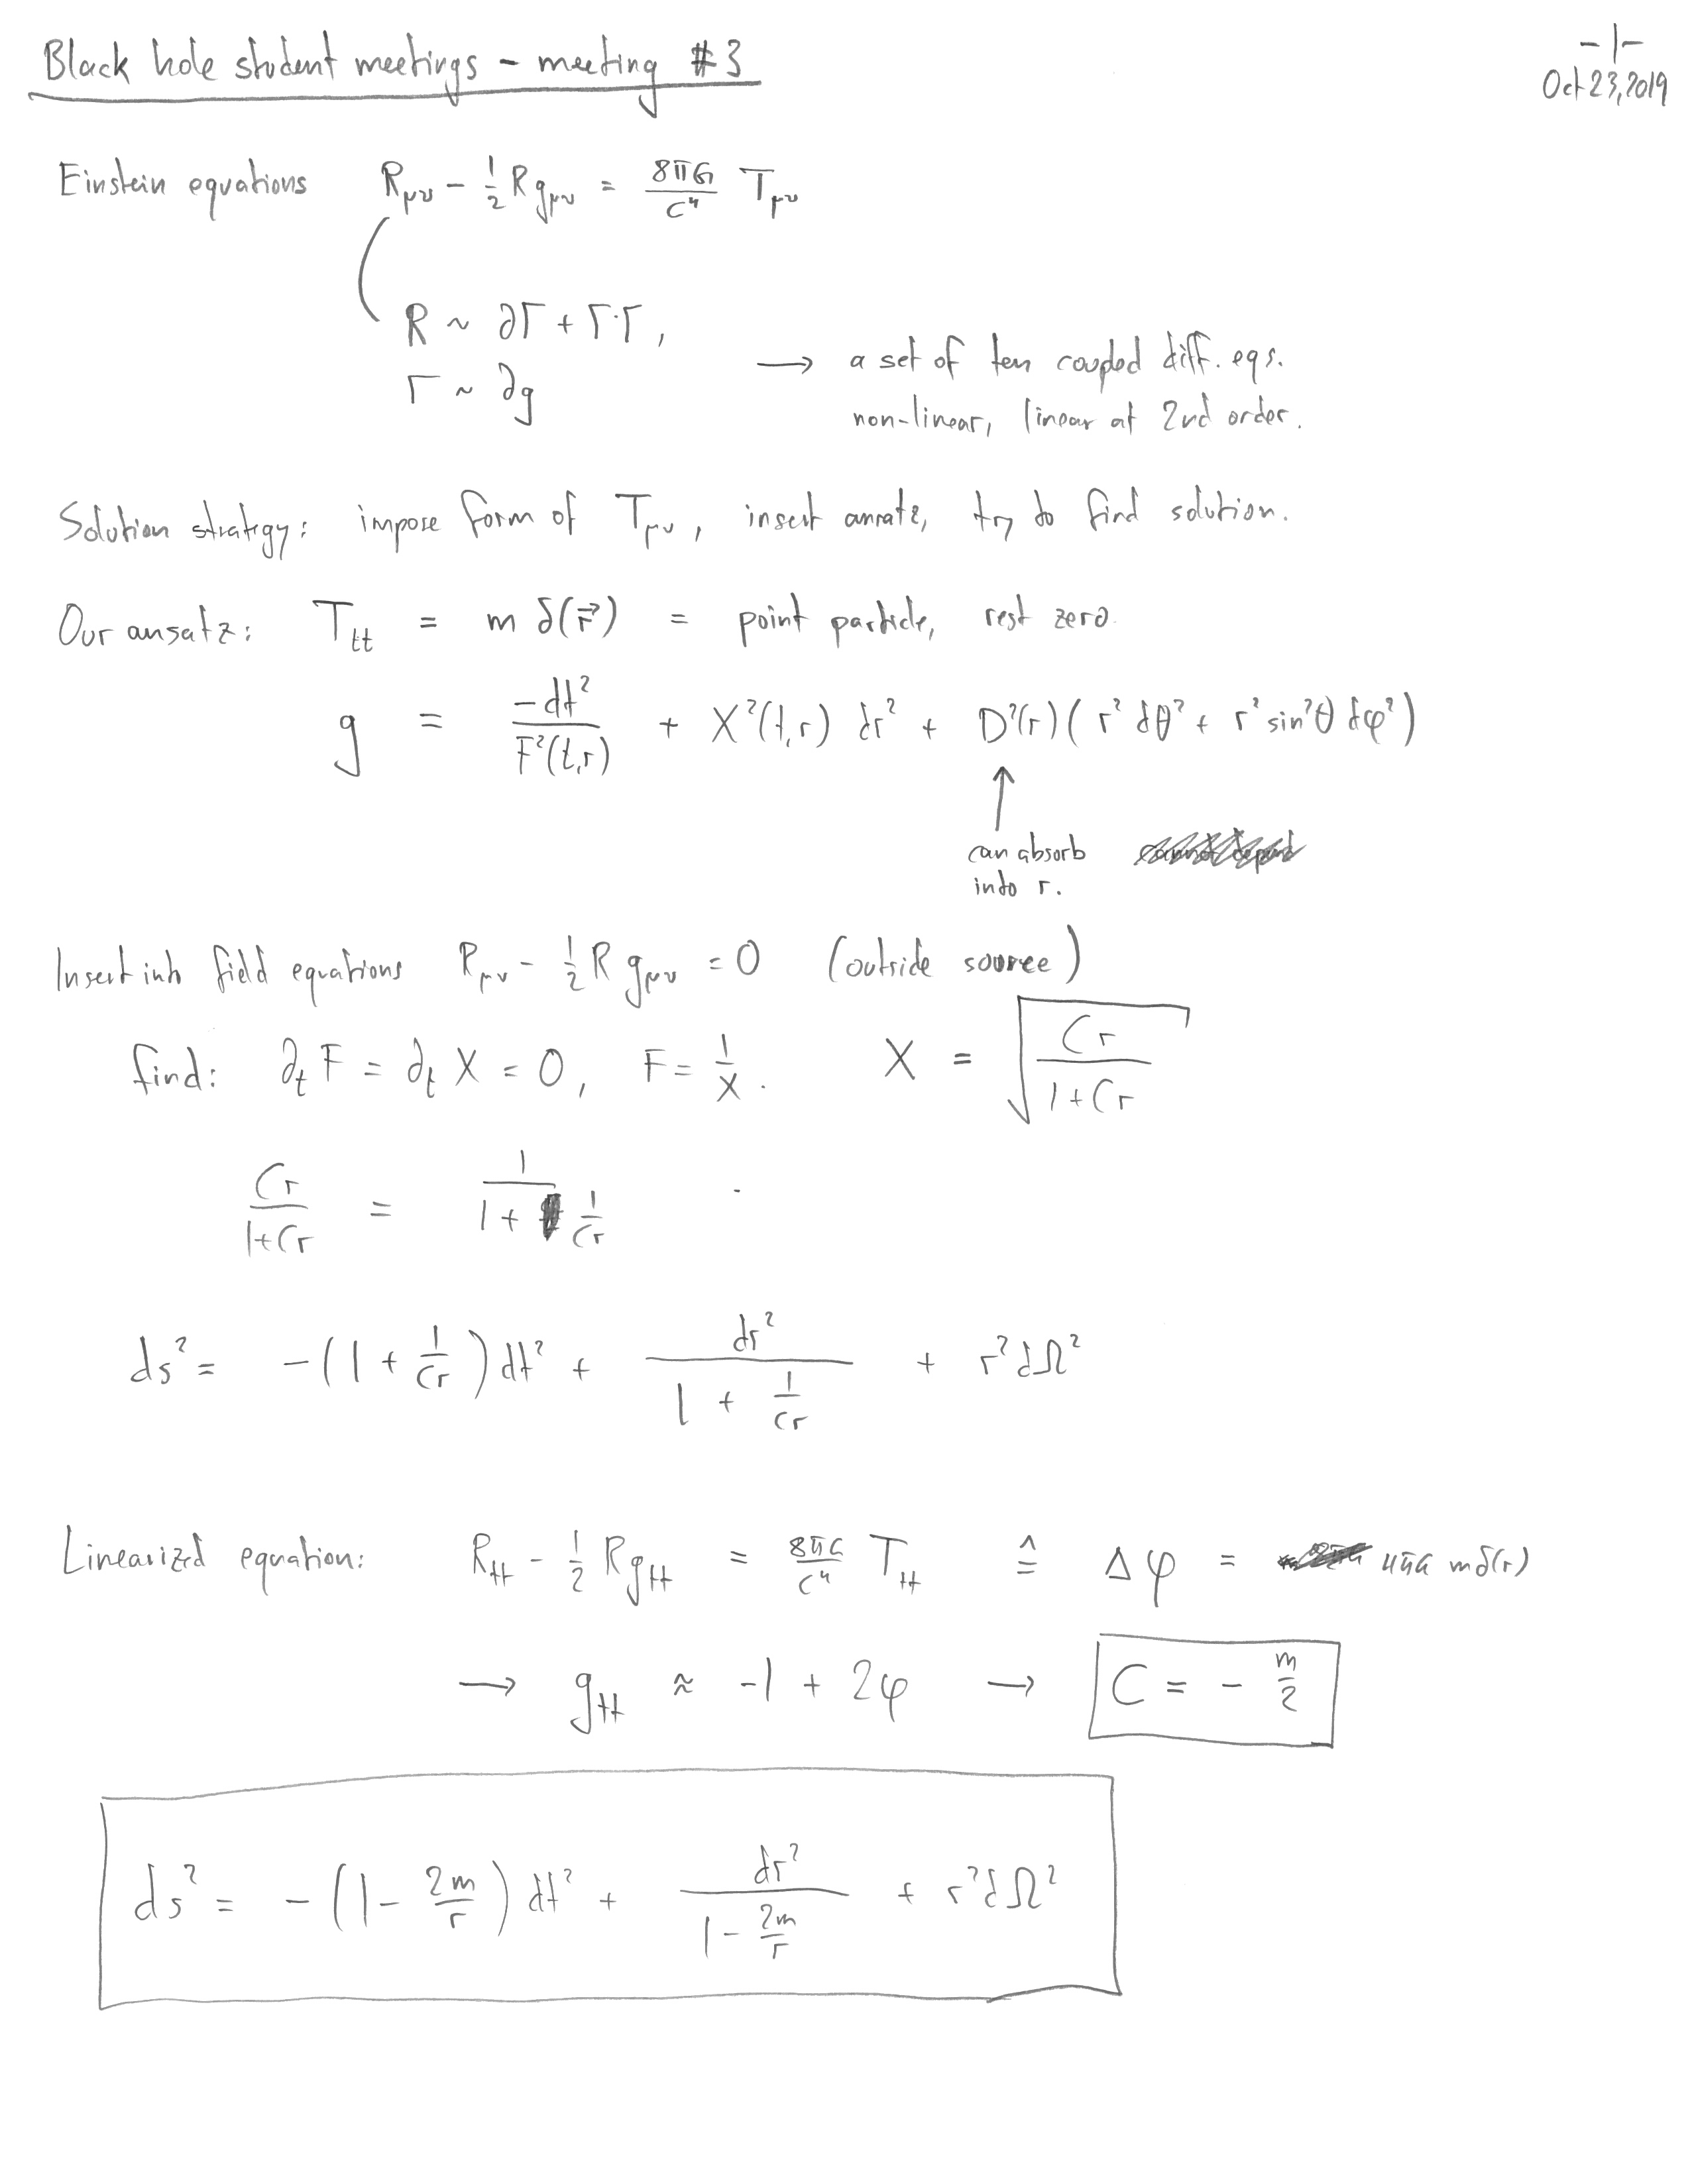 Black hole student meetings - meeting #3
-1-
Oct 23, 2019
Einstein equations R_μν - 1/2 R g_μν = 8πG/c⁴ T_μν
R ~ ∂Γ + Γ·Γ,
Γ ~ ∂g
→ a set of ten coupled diff. eqs.
non-linear, linear at 2nd order.
Solution strategy: impose form of T_μν, insert ansatz, try to find solution.
Our ansatz: T_tt = m δ(r⃗) = point particle, rest zero.
g = -dt²/F²(t,r) + X²(t,r) dr² + D²(r) (r² dθ² + r² sin²θ dφ²)
↑
can absorb
into r.
Insert into field equations R_μν - 1/2 R g_μν = 0 (outside source)
find: ∂_t F = ∂_t X = 0, F = 1/X. X = √(Cr/(1+Cr))
Cr/(1+Cr) = 1/(1 + 1/Cr)
ds² = -(1 + 1/Cr) dt² + dr²/(1 + 1/Cr) + r² dΩ²
Linearized equation: R_tt - 1/2 R g_tt = 8πG/c⁴ T_tt ≙ Δφ = 4πG mδ(r)
→ g_tt ≈ -1 + 2φ → C = - m/2
ds² = -(1 - 2m/r) dt² + dr²/(1 - 2m/r) + r² dΩ²